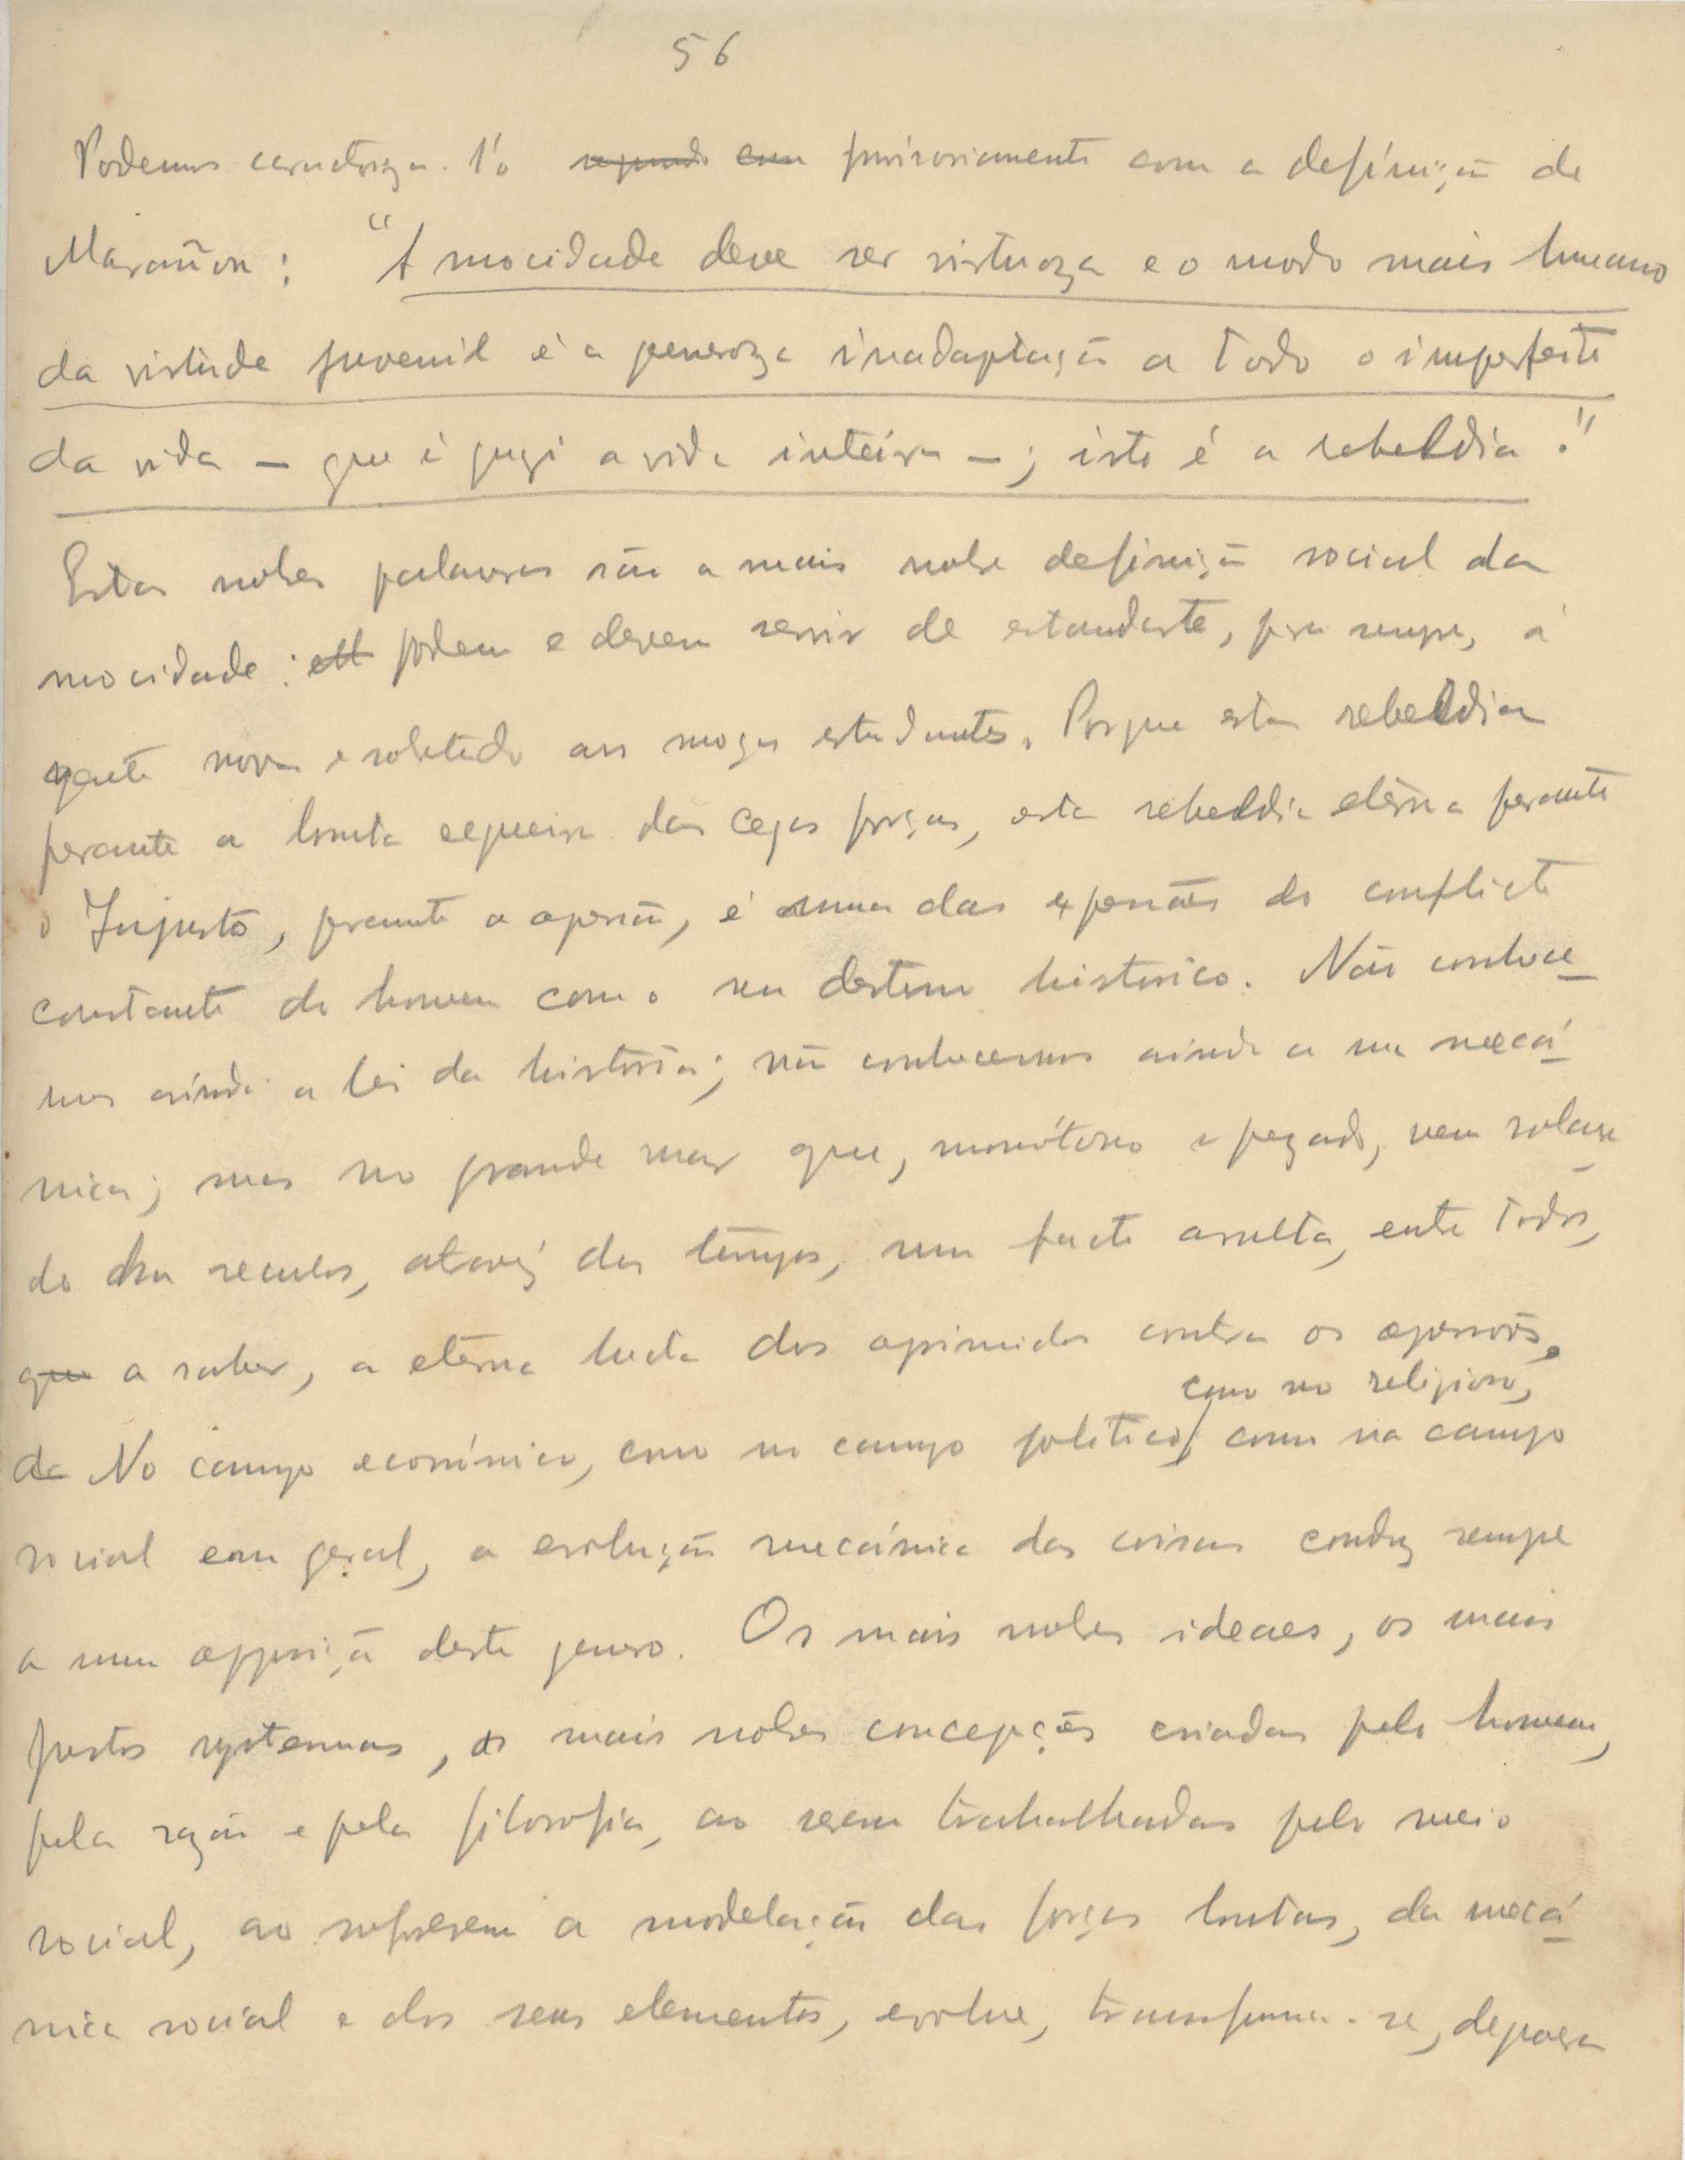 56
Podemos caracterizá-l'o segundo com provisoriamente com a definição de
Marañon: "A mocidade deve ser virtuoza e o modo mais humano
da virtude juvenil é a generoza inadaptação a todo o imperfeito
da vida — que é quazi a vida inteira —; isto é a rebeldia."
Estas nobres palavras são a mais nobre definição social da
mocidade: podem e devem servir de estandarte, para sempre, á
gente nova e sobretudo aos moços estudantes. Porque esta rebeldia
perante a bruta cegueira das cegas forças, esta rebeldia etérna perante
o Injusto, perante a opressão, é uma das expressões do conflicto
constante do homem com o seu destino historico. Não conhece-
mos ainda a lei da história; não conhecemos ainda a sua mecâ-
nica; mas no grande mar que, monótono e pezado, vem rolan-
do dos seculos, atravéz dos tempos, um facto avulta, entre todos,
que a saber, a etérna luta dos oprimidos contra os opressôres.
como no religioso,
da No campo económico, como no campo politico, como na campo
social em geral, a evolução mecánica das coisas conduz sempre
a uma opposição deste genero. Os mais nobres ideaes, os mais
justos systemas, as mais nobres concepções criadas pelo homem,
pela razão e pela filosofia, ao serem trabalhadas pelo meio
social, ao sofrerem a modelação das forças brutas, da mecá-
nica social e dos seus elementos, evolve, transforma-se, depaera